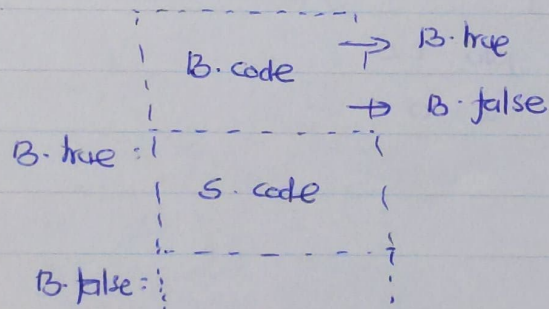 B.code → B.true
→ B.false
B.true :
S.code
B.false :